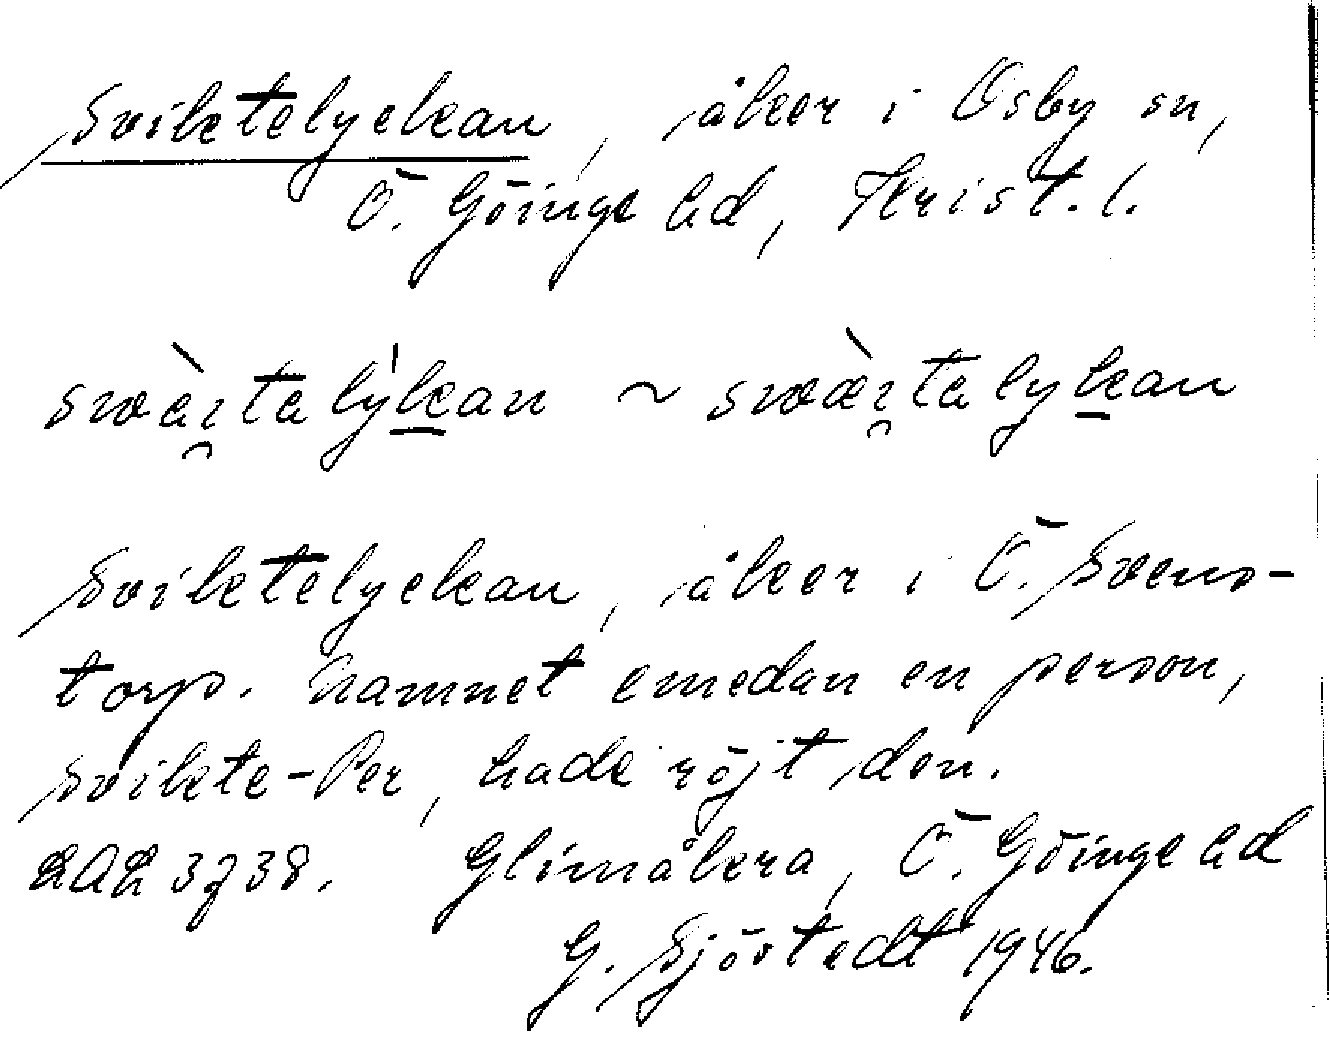 Sviketelyckan, åker i Osby sn,
Ö. Göinge hd, Krist. l.
Sviketelyckan, åker i Ö. Svens-
torp. Namnet emedan en person,
Svikete-Per, hade röjt den.
LAL 3738. Glimåkra, Ö. Göinge hd
G. Sjöstedt 1946.